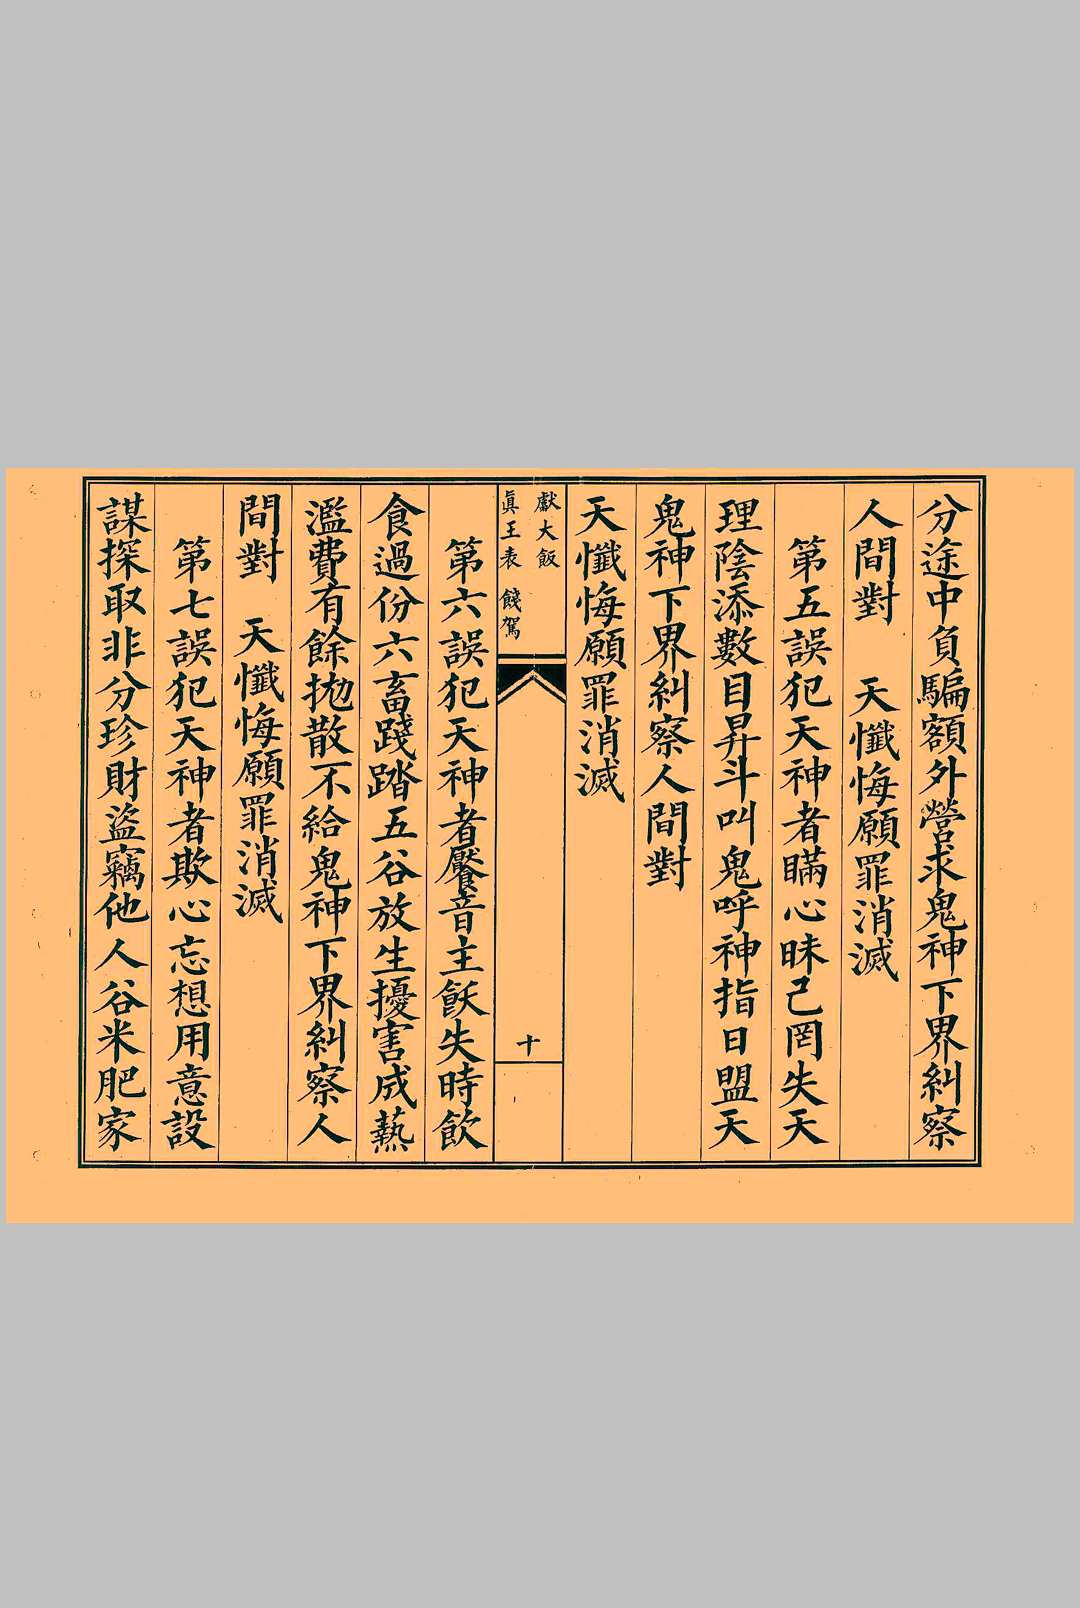 分途中負騙額外營求鬼神下界糾察
人間對　天懺悔願罪消滅
第五誤犯天神者瞞心昧己罔失天
理陰添數目昇斗叫鬼呼神指日盟天
鬼神下界糾察人間對
天懺悔願罪消滅
獻大飯
眞王表　餞駕
十
第六誤犯天神者饜音主飫失時飲
食過份六畜踐踏五谷放生擾害成熱
濫費有餘拋散不給鬼神下界糾察人
間對　天懺悔願罪消滅
第七誤犯天神者欺心忘想用意設
謀探取非分珍財盜竊他人谷米肥家